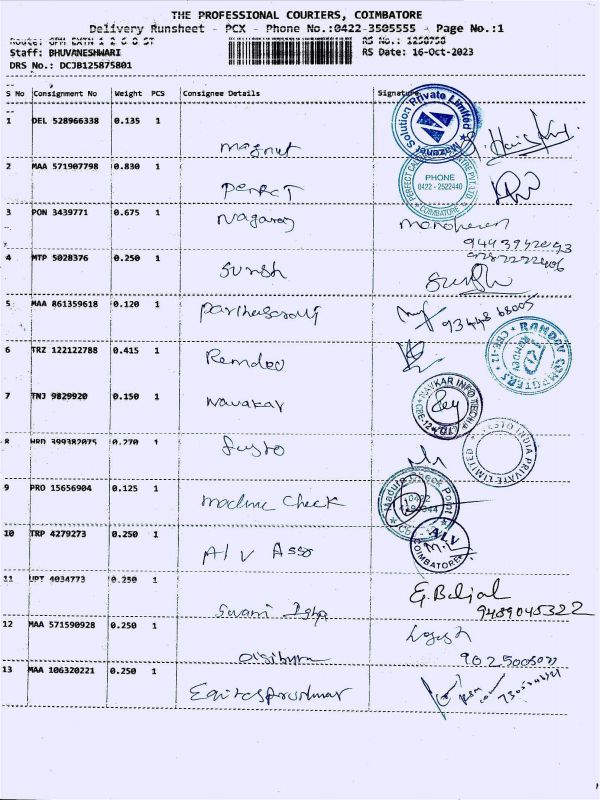 THE PROFESSIONAL COURIERS, COIMBATORE
Delivery Runsheet - PCX - Phone No.:0422-3505555 - Page No.:1
RS No.: 1258758
Staff: BHUVANESHWARI RS Date: 16-Oct-2023
DRS No.: DCJB125875801
S No Consignment No Weight PCS Consignee Details Signature
1 DEL 528966338 0.135 1
Mazenet Solution Private Limited
magnut
2 MAA 571907798 0.830 1
PHONE
0422 - 2522440
COIMBATORE
perfect
3 PON 3439771 0.675 1
Nagaraj
manoharan
4 MTP 5028376 0.250 1
Suresh
5 MAA 861359618 0.120 1
93448 68005
6 TRZ 122122788 0.415 1
Ramdev
RAMDEV COMPUTERS CBE-12
7 TNJ 9829920 0.150 1
NAVKAR INFO TECH CBE-12
Navakar
8 HRD 399382075 0.270 1
INDIA PRIVATE LIMITED
Festo
9 PRO 15656904 0.125 1
Madure Check Point
0422
madure check
10 TRP 4279273 0.250 1
ALV COIMBATORE
ALV Asso
11 UPT 4034773 0.250 1
Swami
9489045322
12 MAA 571590928 0.250 1
Logesh
13 MAA 106320221 0.250 1